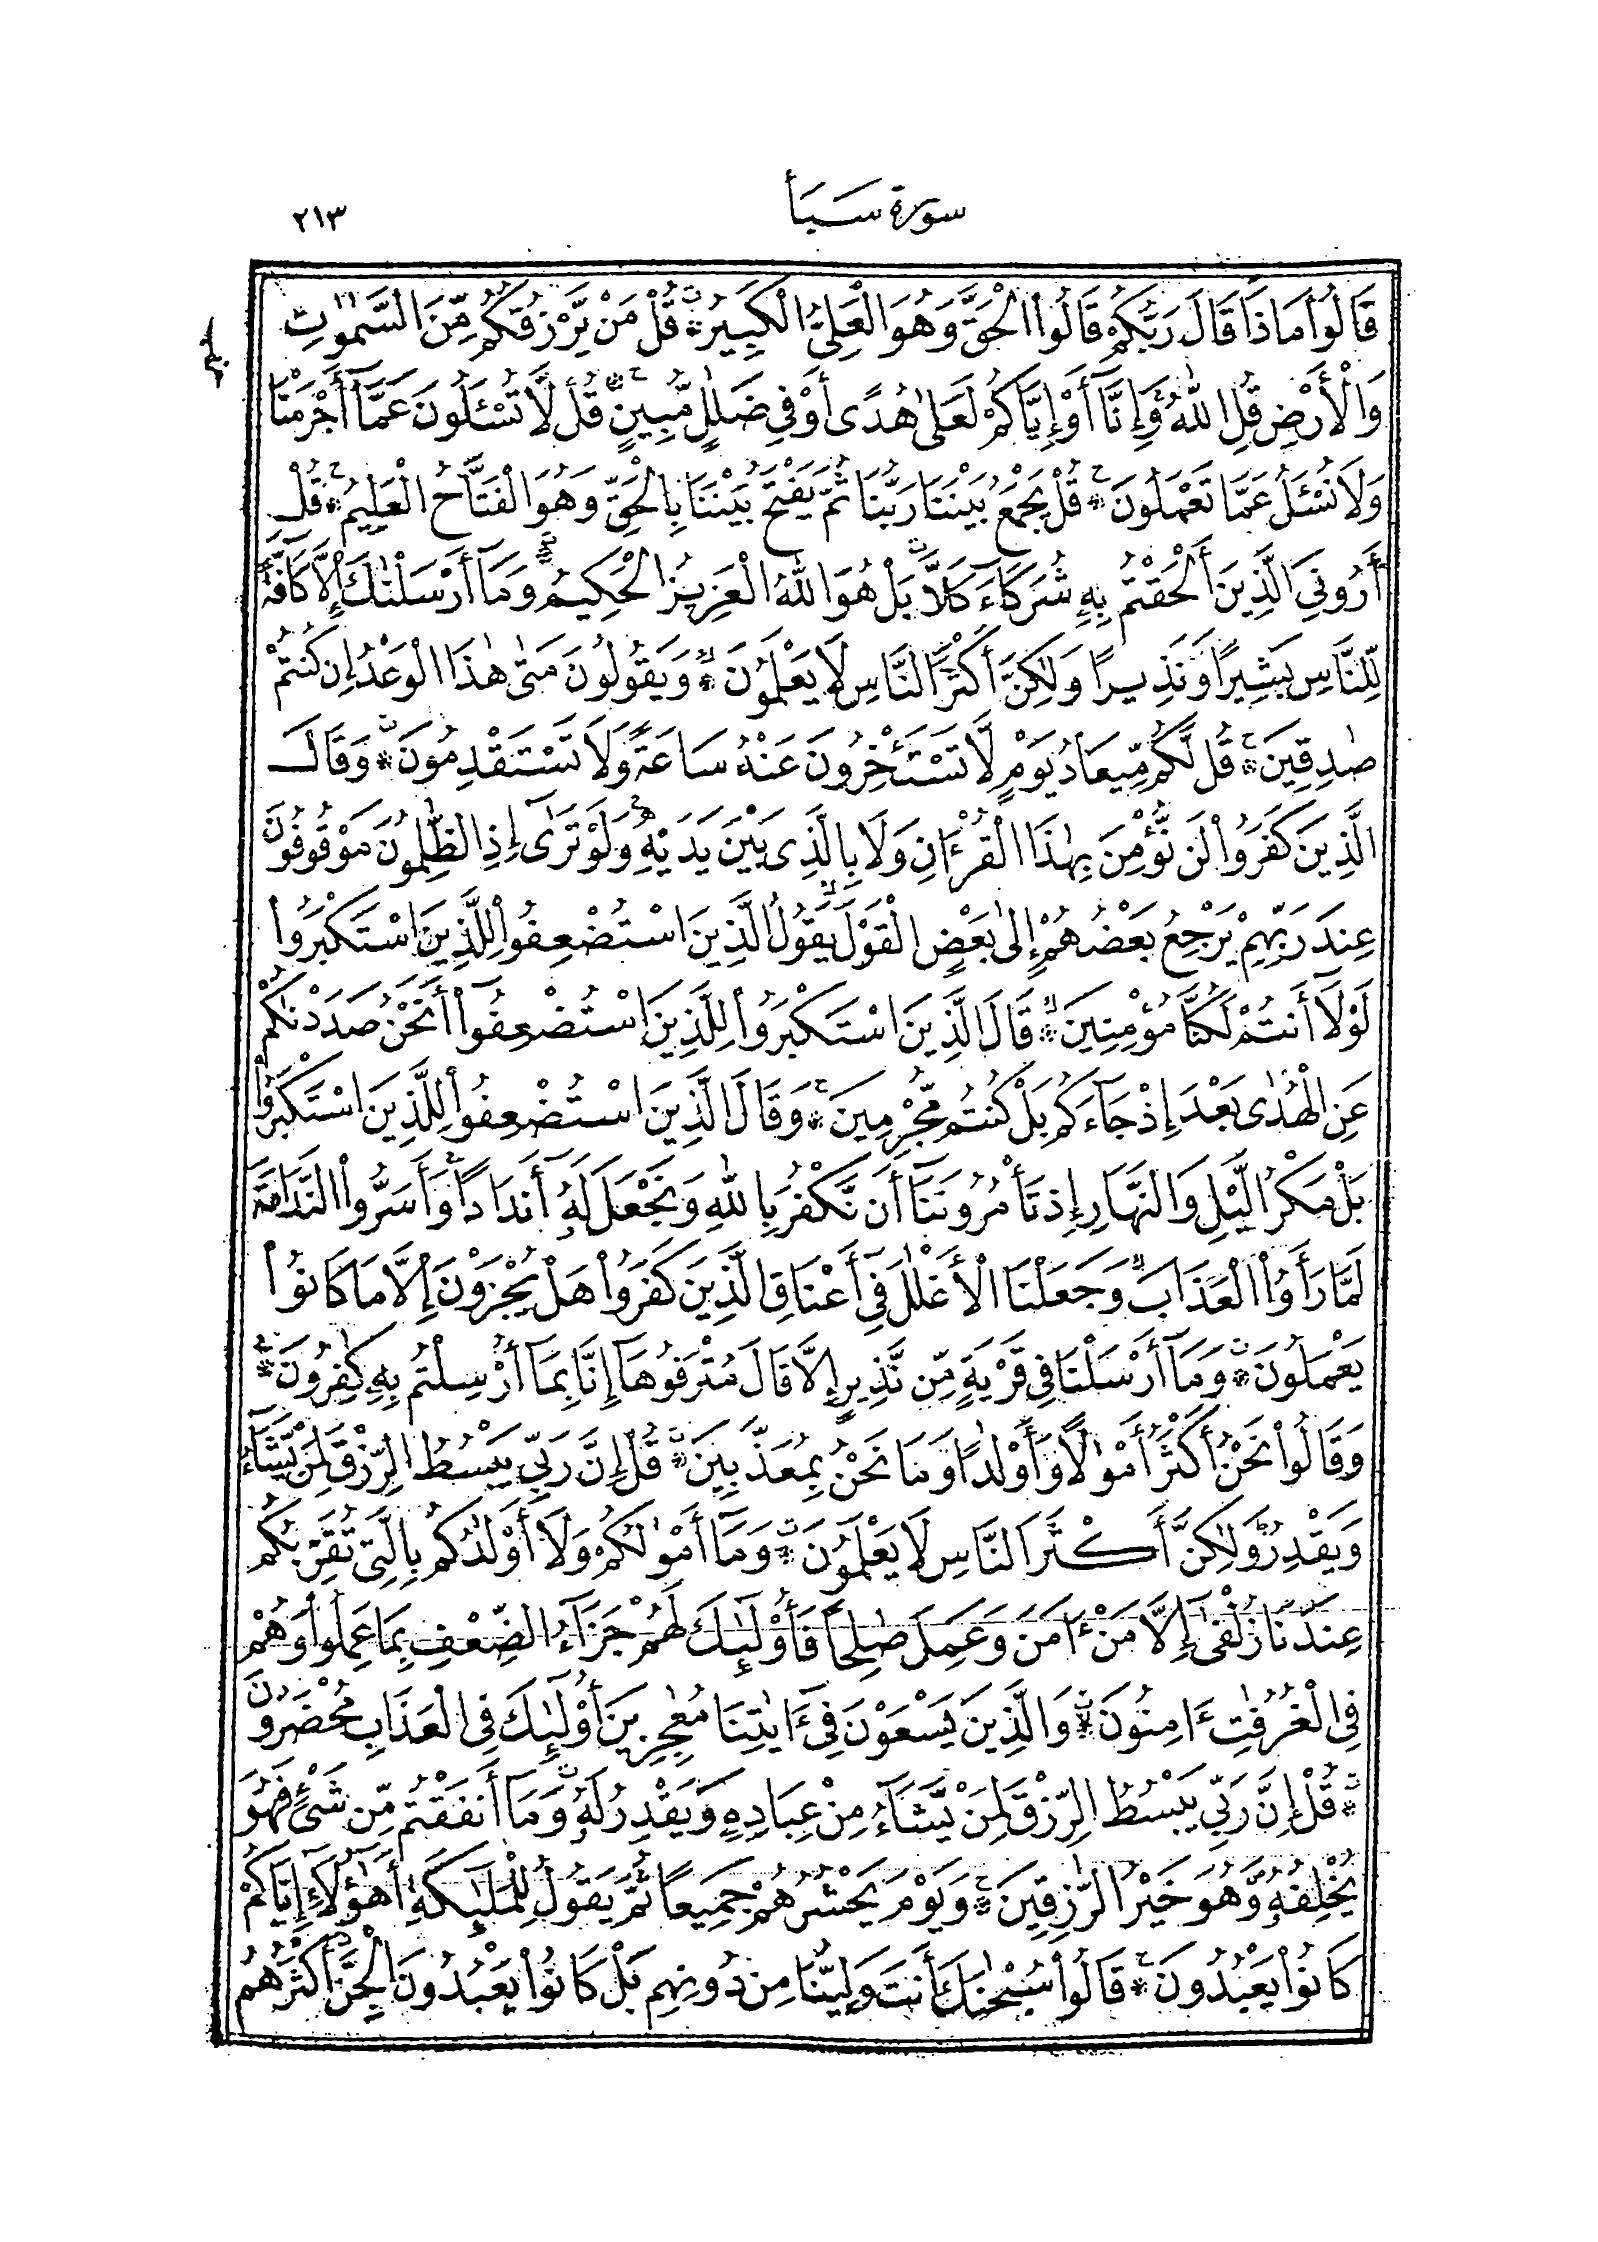 سورة سبأ
٢١٣
قَالُوا۟ مَاذَا قَالَ رَبُّكُمْ قَالُوا۟ الْحَقَّ وَهُوَ الْعَلِىُّ الْكَبِيرُ ۞ قُلْ مَنْ يَّرْزُقُكُم مِّنَ السَّمَٰوَٰتِ
وَالْأَرْضِ قُلِ اللَّهُ وَإِنَّآ أَوْ إِيَّاكُمْ لَعَلَىٰ هُدًى أَوْ فِى ضَلَٰلٍ مُّبِينٍ ۞ قُل لَّا تُسْـَٔلُونَ عَمَّآ أَجْرَمْنَا
وَلَا نُسْـَٔلُ عَمَّا تَعْمَلُونَ ۞ قُلْ يَجْمَعُ بَيْنَنَا رَبُّنَا ثُمَّ يَفْتَحُ بَيْنَنَا بِالْحَقِّ وَهُوَ الْفَتَّاحُ الْعَلِيمُ ۞ قُلْ
أَرُونِىَ الَّذِينَ أَلْحَقْتُم بِهِ شُرَكَآءَ كَلَّا بَلْ هُوَ اللَّهُ الْعَزِيزُ الْحَكِيمُ ۞ وَمَآ أَرْسَلْنَٰكَ إِلَّا كَآفَّةً
لِّلنَّاسِ بَشِيرًا وَنَذِيرًا وَلَٰكِنَّ أَكْثَرَ النَّاسِ لَا يَعْلَمُونَ ۞ وَيَقُولُونَ مَتَىٰ هَٰذَا الْوَعْدُ إِن كُنتُمْ
صَٰدِقِينَ ۞ قُل لَّكُم مِّيعَادُ يَوْمٍ لَّا تَسْتَـْٔخِرُونَ عَنْهُ سَاعَةً وَلَا تَسْتَقْدِمُونَ ۞ وَقَالَ
الَّذِينَ كَفَرُوا۟ لَن نُّؤْمِنَ بِهَٰذَا الْقُرْءَانِ وَلَا بِالَّذِى بَيْنَ يَدَيْهِ وَلَوْ تَرَىٰٓ إِذِ الظَّٰلِمُونَ مَوْقُوفُونَ
عِندَ رَبِّهِمْ يَرْجِعُ بَعْضُهُمْ إِلَىٰ بَعْضٍ الْقَوْلَ يَقُولُ الَّذِينَ اسْتُضْعِفُوا۟ لِلَّذِينَ اسْتَكْبَرُوا۟
لَوْلَآ أَنتُمْ لَكُنَّا مُؤْمِنِينَ ۞ قَالَ الَّذِينَ اسْتَكْبَرُوا۟ لِلَّذِينَ اسْتُضْعِفُوٓا۟ أَنَحْنُ صَدَدْنَٰكُمْ
عَنِ الْهُدَىٰ بَعْدَ إِذْ جَآءَكُم بَلْ كُنتُم مُّجْرِمِينَ ۞ وَقَالَ الَّذِينَ اسْتُضْعِفُوا۟ لِلَّذِينَ اسْتَكْبَرُوا۟
بَلْ مَكْرُ الَّيْلِ وَالنَّهَارِ إِذْ تَأْمُرُونَنَآ أَن نَّكْفُرَ بِاللَّهِ وَنَجْعَلَ لَهُ أَندَادًا وَأَسَرُّوا۟ النَّدَامَةَ
لَمَّا رَأَوُا۟ الْعَذَابَ وَجَعَلْنَا الْأَغْلَٰلَ فِىٓ أَعْنَاقِ الَّذِينَ كَفَرُوا۟ هَلْ يُجْزَوْنَ إِلَّا مَا كَانُوا۟
يَعْمَلُونَ ۞ وَمَآ أَرْسَلْنَا فِى قَرْيَةٍ مِّن نَّذِيرٍ إِلَّا قَالَ مُتْرَفُوهَآ إِنَّا بِمَآ أُرْسِلْتُم بِهِ كَٰفِرُونَ ۞
وَقَالُوا۟ نَحْنُ أَكْثَرُ أَمْوَٰلًا وَأَوْلَٰدًا وَمَا نَحْنُ بِمُعَذَّبِينَ ۞ قُلْ إِنَّ رَبِّى يَبْسُطُ الرِّزْقَ لِمَنْ يَّشَآءُ
وَيَقْدِرُ وَلَٰكِنَّ أَكْثَرَ النَّاسِ لَا يَعْلَمُونَ ۞ وَمَآ أَمْوَٰلُكُمْ وَلَآ أَوْلَٰدُكُم بِالَّتِى تُقَرِّبُكُمْ
عِندَنَا زُلْفَىٰٓ إِلَّا مَنْ ءَامَنَ وَعَمِلَ صَٰلِحًا فَأُو۟لَٰٓئِكَ لَهُمْ جَزَآءُ الضِّعْفِ بِمَا عَمِلُوا۟ وَهُمْ
فِى الْغُرُفَٰتِ ءَامِنُونَ ۞ وَالَّذِينَ يَسْعَوْنَ فِىٓ ءَايَٰتِنَا مُعَٰجِزِينَ أُو۟لَٰٓئِكَ فِى الْعَذَابِ مُحْضَرُونَ
۞ قُلْ إِنَّ رَبِّى يَبْسُطُ الرِّزْقَ لِمَنْ يَّشَآءُ مِنْ عِبَادِهِ وَيَقْدِرُ لَهُ وَمَآ أَنفَقْتُم مِّن شَىْءٍ فَهُوَ
يُخْلِفُهُ وَهُوَ خَيْرُ الرَّٰزِقِينَ ۞ وَيَوْمَ يَحْشُرُهُمْ جَمِيعًا ثُمَّ يَقُولُ لِلْمَلَٰٓئِكَةِ أَهَٰٓؤُلَآءِ إِيَّاكُمْ
كَانُوا۟ يَعْبُدُونَ ۞ قَالُوا۟ سُبْحَٰنَكَ أَنتَ وَلِيُّنَا مِن دُونِهِم بَلْ كَانُوا۟ يَعْبُدُونَ الْجِنَّ أَكْثَرُهُم